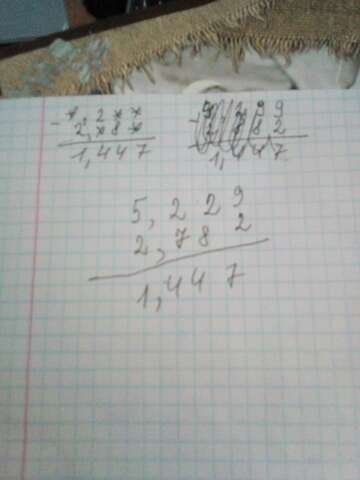 * , 2 * *
- 2 , * 8 *
1,447
9 9
8 2
1,447
5,229
2,782
1,447